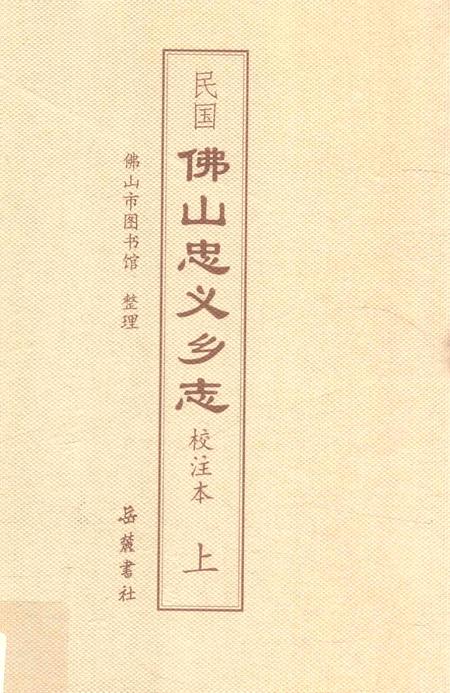 民国 佛山忠义乡志 校注本 上
佛山市图书馆 整理
岳麓书社